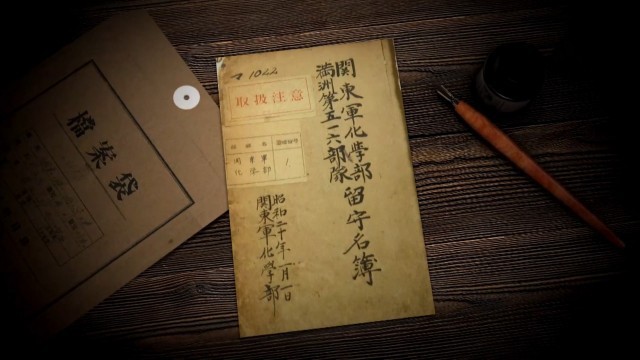 檔案袋
マ1044
取扱注意
関東軍
化学部
1
関東軍化學部
満洲第五一六部隊
留守名簿
昭和二十年一月一日
関東軍化學部